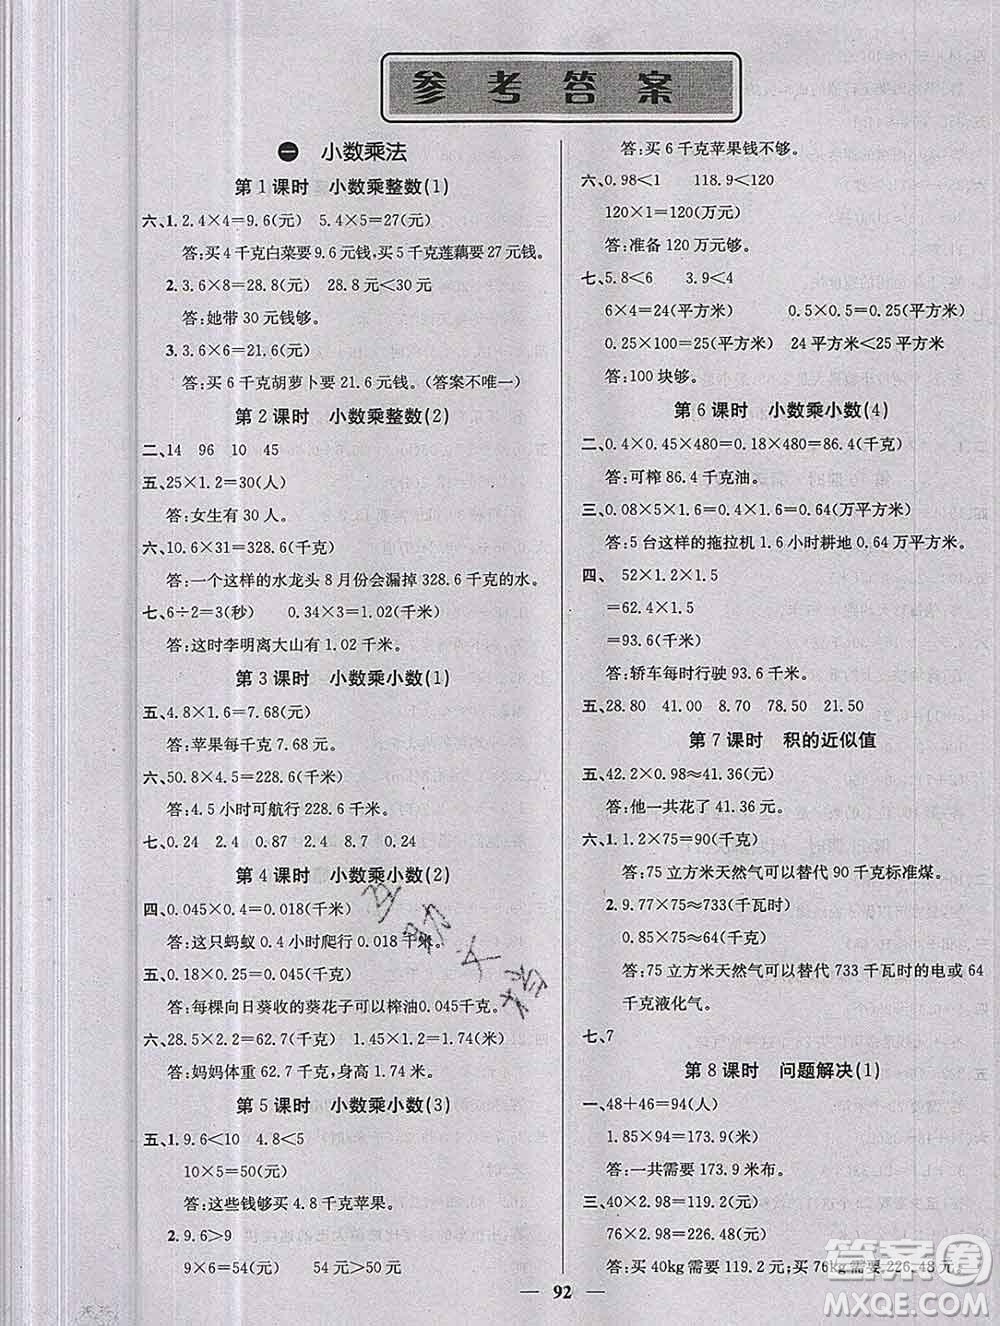 参考答案
一 小数乘法
第1课时 小数乘整数(1)
六、1.2.4×4=9.6(元) 5.4×5=27(元)
答:买4千克白菜要9.6元钱,买5千克莲藕要27元钱。
2.3.6×8=28.8(元) 28.8元<30元
答:她带30元钱够。
3.3.6×6=21.6(元)
答:买6千克胡萝卜要21.6元钱。(答案不唯一)
第2课时 小数乘整数(2)
二、14 96 10 45
五、25×1.2=30(人)
答:女生有30人。
六、10.6×31=328.6(千克)
答:一个这样的水龙头8月份会漏掉328.6千克的水。
七、6÷2=3(秒) 0.34×3=1.02(千米)
答:这时李明离大山有1.02千米。
第3课时 小数乘小数(1)
五、4.8×1.6=7.68(元)
答:苹果每千克7.68元。
六、50.8×4.5=228.6(千米)
答:4.5小时可航行228.6千米。
七、0.24 2.4 0.87 2.4 8.7 0.24
第4课时 小数乘小数(2)
四、0.045×0.4=0.018(千米)
答:这只蚂蚁0.4小时爬行0.018千米。
五、0.18×0.25=0.045(千克)
答:每棵向日葵收的葵花子可以榨油0.045千克。
六、28.5×2.2=62.7(千克) 1.45×1.2=1.74(米)
答:妈妈体重62.7千克,身高1.74米。
第5课时 小数乘小数(3)
五、1.9.6<10 4.8<5
10×5=50(元)
答:这些钱够买4.8千克苹果。
2.9.6>9
9×6=54(元) 54元>50元
答:买6千克苹果钱不够。
六、0.98<1 118.9<120
120×1=120(万元)
答:准备120万元够。
七、5.8<6 3.9<4
6×4=24(平方米) 0.5×0.5=0.25(平方米)
0.25×100=25(平方米) 24平方米<25平方米
答:100块够。
第6课时 小数乘小数(4)
二、0.4×0.45×480=0.18×480=86.4(千克)
答:可榨86.4千克油。
三、0.08×5×1.6=0.4×1.6=0.64(万平方米)
答:5台这样的拖拉机1.6小时耕地0.64万平方米。
四、 52×1.2×1.5
=62.4×1.5
=93.6(千米)
答:轿车每时行驶93.6千米。
五、28.80 41.00 8.70 78.50 21.50
第7课时 积的近似值
五、42.2×0.98≈41.36(元)
答:他一共花了41.36元。
六、1.1.2×75=90(千克)
答:75立方米天然气可以替代90千克标准煤。
2.9.77×75≈733(千瓦时)
0.85×75≈64(千克)
答:75立方米天然气可以替代733千瓦时的电或64
千克液化气。
七、7
第8课时 问题解决(1)
一、48+46=94(人)
1.85×94=173.9(米)
答:一共需要173.9米布。
三、40×2.98=119.2(元)
76×2.98=226.48(元)
答:买40kg需要119.2元;买76kg需要226.48元。
92
互助文档
答案圈
MXQE.COM